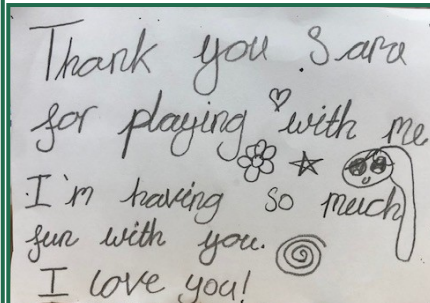 Thank you Sara
for playing with me
I'm having so much
fun with you.
I love you!